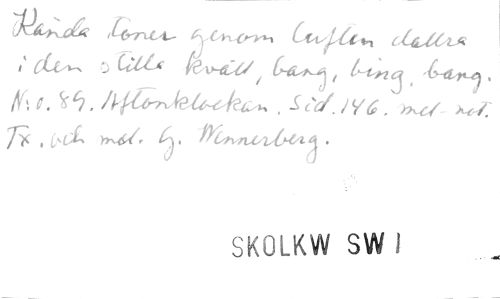 Kända toner genom luften dallra
i den stilla kväll, bang, bing, bang.
N:o. 89. Aftonklockan. Sid. 146. mel-not.
Tx. och mel. G. Wennerberg.
SKOLKW SW 1